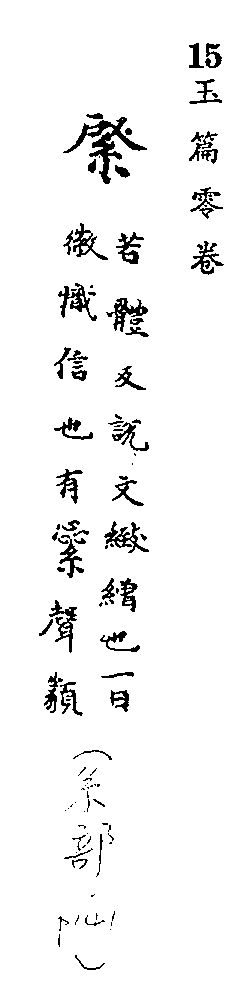 15玉篇零卷
綮
苦體反說文緻繒也一曰
徽幟信也有綮聲類
(糸部